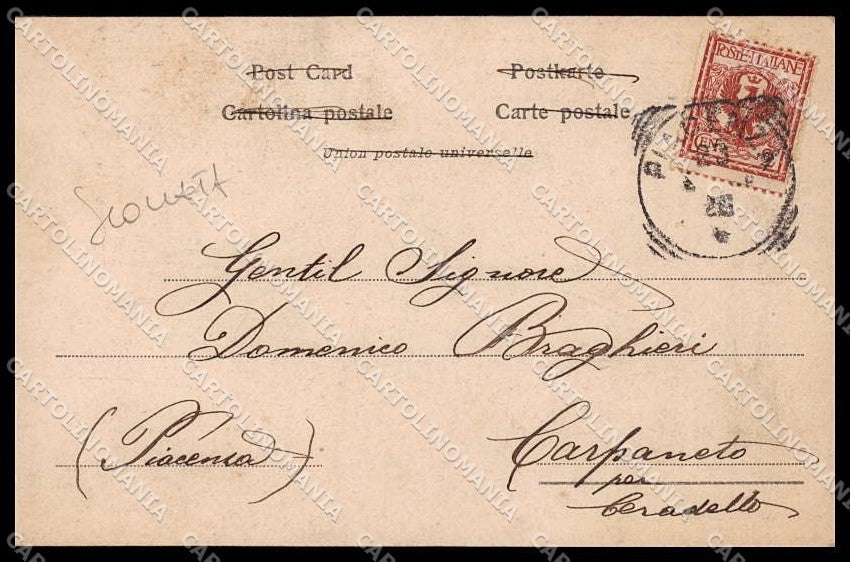 Post Card
Postkarte
Cartolina postale
Carte postale
Union postale universelle
POSTE ITALIANE
Gentil Signore
Domenico Braghieri
(Piacenza)
Carpaneto
per
Ceradello
CARTOLINOMANIA